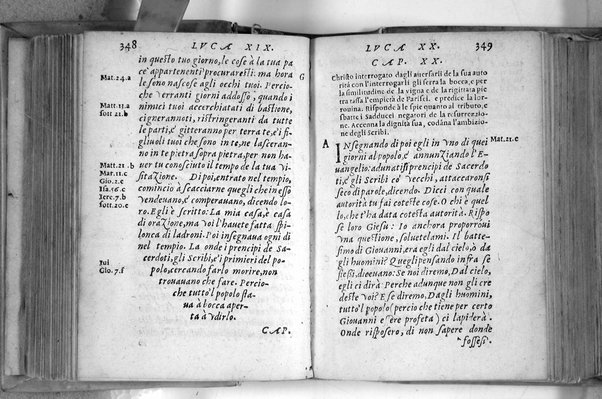 348 LVCA XIX.
in questo tuo giorno, le cose à la tua pa
ce' appartenenti procuraresti: ma hora
Mat.24.a
le sono nascose agli occhi tuoi. Percio-
G
che' verranti giorni addosso, quando i
Mat.21.a
nimici tuoi accerchiatati di bastione,
Sott 21.b
cigneranoti, ristringeranti da tutte
le parti, e' gitteranno per terra te, e'i fi-
gliuoli tuoi che sono inte, ne lasceran-
no in te pietra sopra pietra, per non ha-
Matt.21.b
uer tu conosciuto il tempo de la tua Vi-
Mar.11.c
sitazione. Dipoi, entrato nel tempio,
Gio.2.c
cominciò à scacciarne quegli che'n esso
Isa.56.c
vendeuano, e' comperauano, dicendo lo-
Iere.7.b
ro. Egli è scritto: La mia casa, è casa
Sott.20.e
di orazione, ma voi l'hauete fatta spi-
lonca di ladroni. Poi insegnaua ogni dì
nel tempio. La onde i principi de Sa-
cerdoti, gli Scribi, e' i primieri del po-
Tui
polo, cercando farlo morire, non
Gio.7.f
trouauano che fare. Percio-
che tutto'l popolo sta-
ua à bocca aper-
ta à vdirlo.
CAP.
LVCA XX. 349
CAP. XX.
Christo interrogato dagli auersarii de la sua auto
rità con l'interrogarli gli serra la bocca, e per
la similitudine de la vigna e de la rigittata pie
tra tassa l'empietà de Farisei. e predice la lor-
rouina. Risponde à le spie quanto al tributo, e
sbatte i Sadducei negatori de la resurrezzio-
ne. Accenna la dignità sua, codãna l'ambizio-
ne degli Scribi.
Mat.21.c
A
INsegnando di poi egli in vno di quei
giorni al popolo, e' annunziando l'E-
uangelio: adunatisi principi de Sacerdo
ti, e' gli Scribi co' vecchi, attaccaronsi
seco di parole, dicendo. Dicci con quale
autorità tu fai coteste cose. O chi è quel
lo, che t'ha data cotesta autorità. Rispo
se loro Giesu: Io anchora proporroui
vna questione, solueteliami. Il batte-
simo di Giouanni, era egli dal cielo, ò da
gli huomini? Quegli pensando infra se
stessi, diceuano: Se noi diremo, Dal cielo,
egli ci dirà: Perche adunque non gli cre
deste' voi? E se diremo, Dagli huomini,
tutto'l popolo (percio che tiene per certo
Giouanni essere profeta) ci lapiderà.
Onde risposero, di non sapere donde
fossesi.